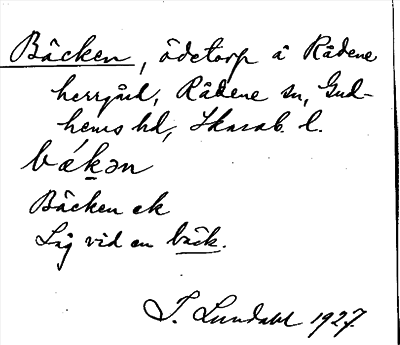 Bäcken, ödetorp å Rådene
herrgård, Rådene sn, Gud-
hems hd, Skarab. l.
bákən
Bäcken ek
Låg vid en bäck.
S. Lundahl 1927.